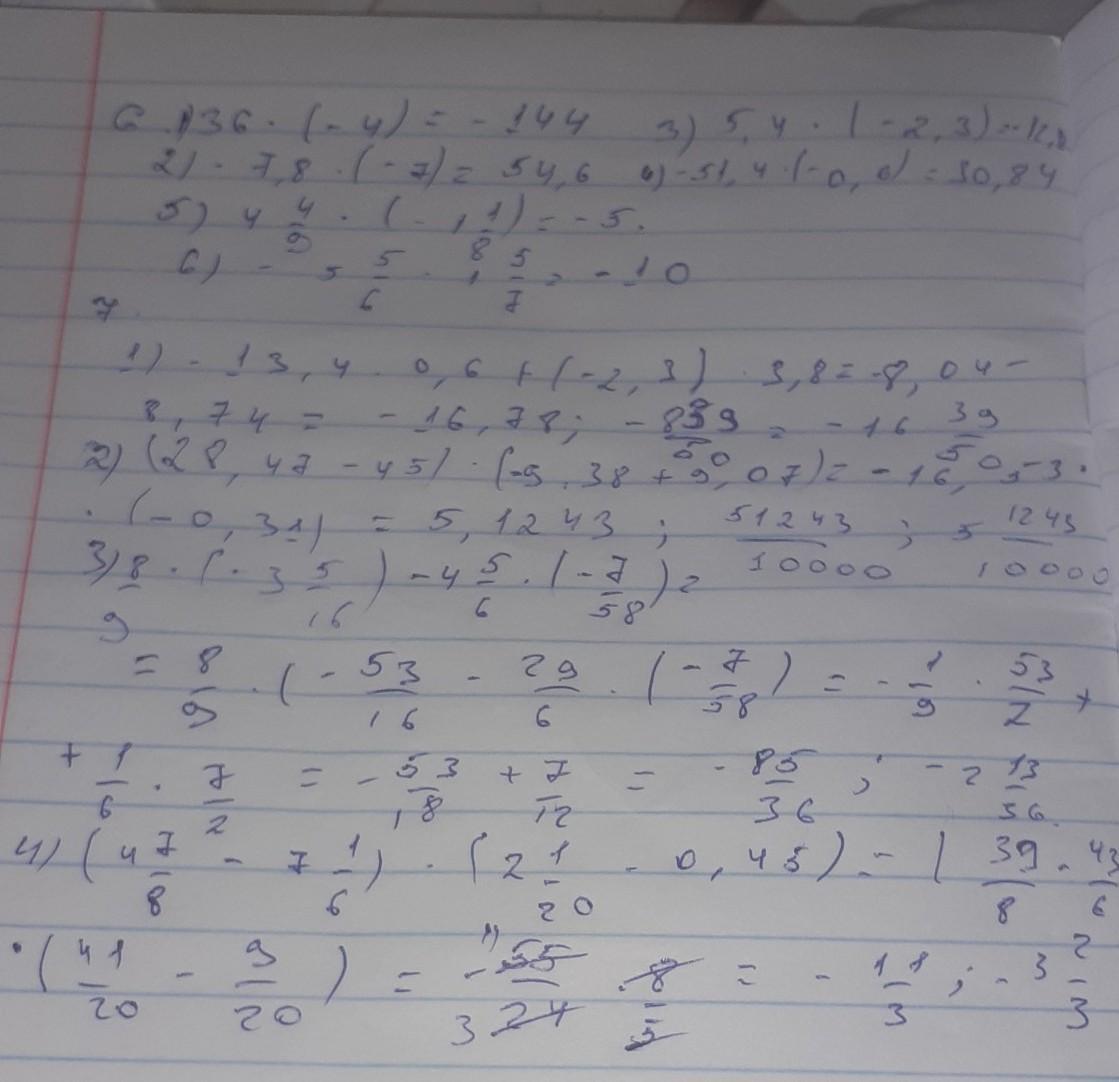 6. 1) 36 · (-4) = -144 3) 5,4 · (-2,3) =
2) -7,8 · (-7) = 54,6 4) -51,4 · (-0,6) = 30,84
5) 4 4/9 · (-1 1/8) = -5.
6) - 5 5/6 · 1 5/7 = -10
7.
1) -13,4 · 0,6 + (-2,3) · 3,8 = -8,04 -
8,74 = -16,78; -839/50 = -16 39/50
2) (28,47 - 45) · (-9,38 + 9,07) = -16,53 ·
· (-0,31) = 5,1243 ; 51243/10000 ; 5 1243/10000
3) 8/9 · (-3 5/16) - 4 5/6 · (-7/58) =
= 8/9 · (-53/16 - 29/6 · (-7/58) = -1/9 · 53/2 +
+ 1/6 · 7/2 = -53/18 + 7/12 = -85/36 ; -2 13/36.
4) (4 7/8 - 7 1/6) · (2 1/20 - 0,45) = ( 39/8 - 43/6
· (41/20 - 9/20) = -55/24 · 8/5 = -11/3 ; -3 2/3